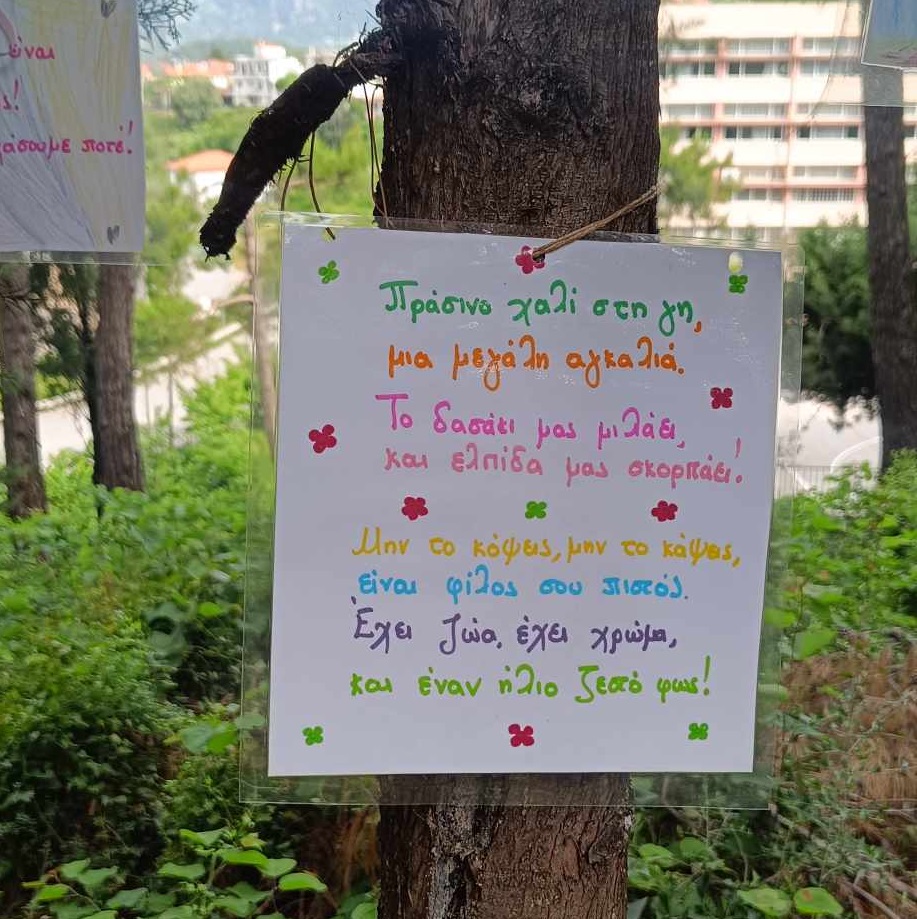 είναι
ς!
άσουμε ποτέ!
Πράσινο χαλί στη γη,
μια μεγάλη αγκαλιά.
Το δασάκι μας μιλάει,
και ελπίδα μας σκορπάει!
Μην το κόψεις, μην το κάψεις,
είναι φίλος σου πιστός.
Έχει ζώα, έχει χρώμα,
και έναν ήλιο ζεστό φως!